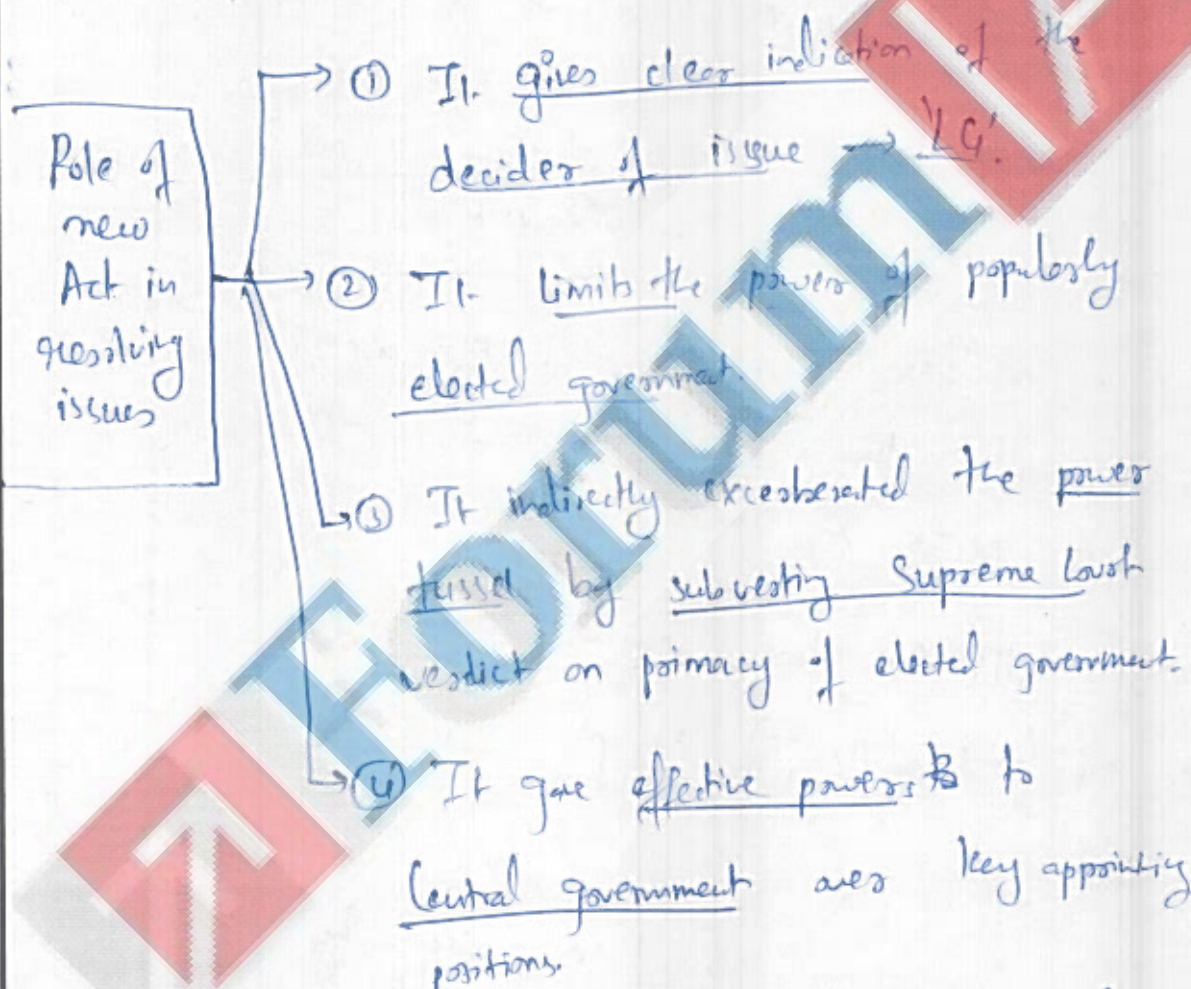 Role of
new
Act in
resolving
issues
① It gives clear indication of the
decider of issue → 'LG'.
② It limits the power of popularly
elected government
③ It indirectly excerberated the power
tussel by subverting Supreme Court
verdict on primacy of elected government.
④ It gave effective powers to
Central government over key appointing
positions.
Forum